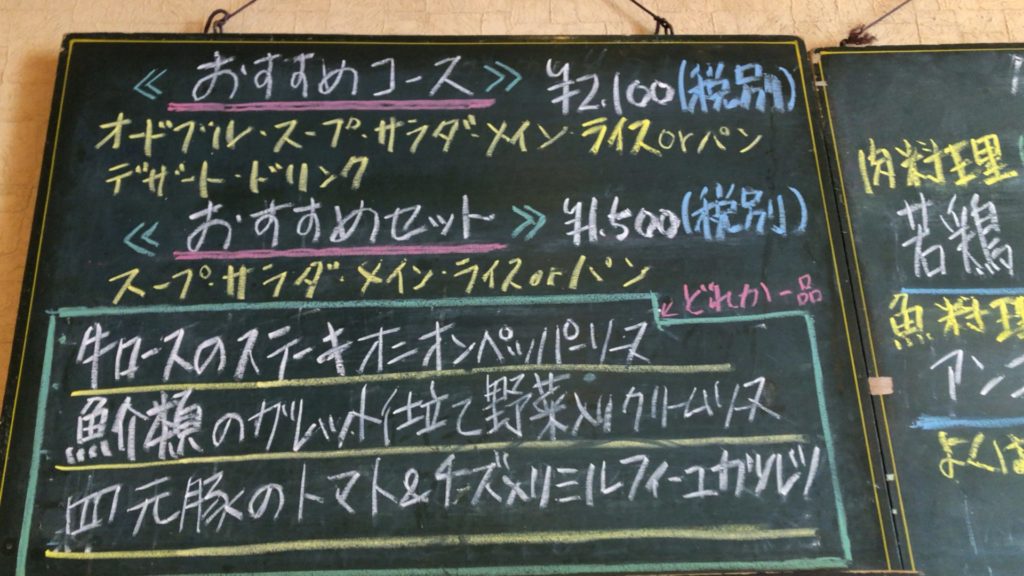 ≪ おすすめコース ≫ ¥2.100(税別)
オードブル・スープ・サラダ・メイン・ライスorパン
デザート・ドリンク
≪ おすすめセット ≫ ¥1.500(税別)
スープ・サラダ・メイン・ライスorパン
←どれか一品
牛ロースのステーキオニオンペッパーソース
魚介類のガレット仕立て野菜入りクリームソース
四元豚のトマト&チーズ入りミルフィーユカツレツ
肉料理
若鶏
魚料理
アン
よくば